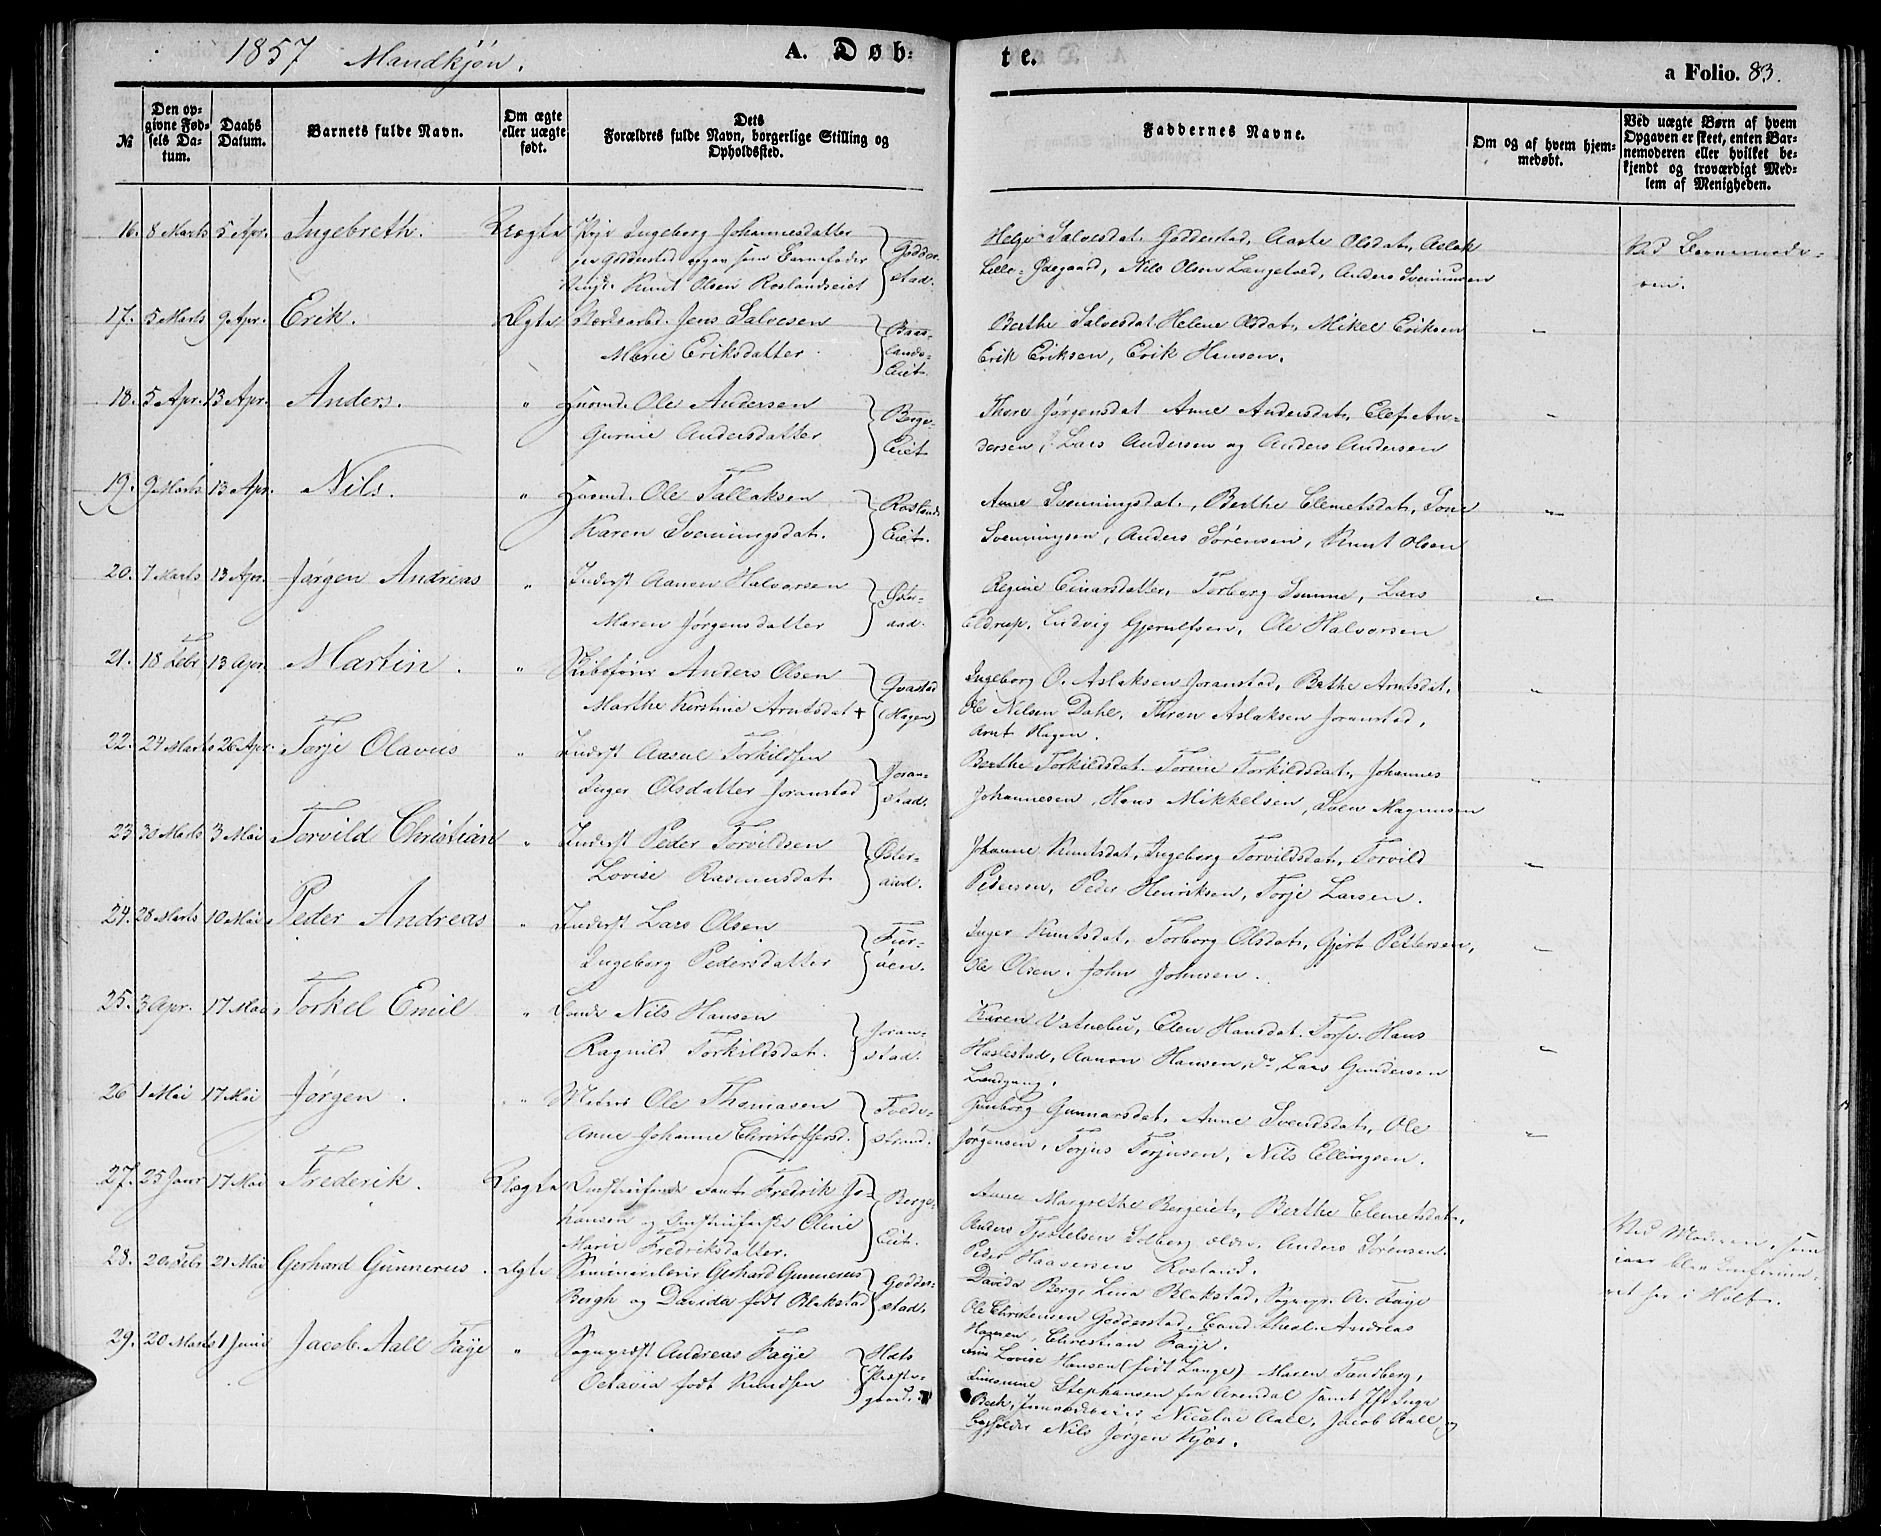 1857 Mandkjøn.
A. Døb:
te.
a Folio. 83.
№
Den opgivne Fødsels Datum.
Daabs Datum.
Barnets fulde Navn.
Om ægte eller uægte født.
Dets Forældres fulde Navn, borgerlige Stilling og Opholdssted.
Faddernes Navne.
Om og af hvem hjemmedøbt.
Ved uægte Børn af hvem Opgaven er skeet, enten Barnemoderen eller hvilket bekjendt og troværdigt Medlem af Menigheden.
16. 8 Marts 5 Apr. Ingebreth. Uægte Pige Ingeborg Johannesdatter
Goddestad opgav som Barnefader
Knut Olsen Roslandseiet
Goddestad.
Helge Salvesdat. Godderstad, Aaste Olsdat, Aslak
Lille-Ødegaard, Nils Olsen Langetved, Anders Sveinunsen
Ved Barnemoderen.
17. 5 Marts 9 Apr. Erik. Ægte Jens Salvesen
Marie Eriksdatter.
Baaslandseiet
Berthe Salvesdat. Helene Olsdat, Mikel Eriksen
Erik Eriksen, Erik Hansen.
18. 5 Apr. 13 Apr. Anders. " Huusmd. Ole Andersen
Gurine Andersdatter
Bergeeiet
Thore Jørgensdat Anne Andersdat, Elef Andersen, Lars Andersen og Anders Andersen
19. 9 Marts 13 Apr. Nils. " Huusmd. Ole Tallaksen
Karen Svenningsdat.
Roslandseiet.
Anne Svenningsdat., Berthe Clemetsdat, Tone
Svenningsen, Anders Sørensen, Knut Olsen
20. 7 Marts 13 Apr. Jørgen Andreas " Inderst Aanon Halvorsen
Maren Jørgensdatter
Østeraad.
Regine Einarsdatter, Torborg Somme, Lars
Eldrup, Ludvig Gjerulfsen, Ole Halvorsen
21. 18 Febr 13 Apr. Martin. " Skibsfører Anders Olsen
Marthe Kirstine Arntsdat +
Qvastad
(Hagen)
Ingeborg O. Aslaksen Joranstad, Berthe Arntsdat,
Ole Nilsen Dahl, Thron Aslaksen Joranstad,
Arnt Hagen.
22. 24 Marts 26 Apr. Terje Olavus " Inderst Aasul Torkildsen
Inger Olsdatter Joranstad
Joranstad.
Berthe Torkildsdat. Torine Torkildsdat, Johannes
Johannesen, Hans Mikkelsen, Sven Magnussen
23. 30 Marts 3 Mai Torvild Christian " Inderst Peder Torvildsen
Lovise Rasmusdat
Østeraad.
Johanne Knutsdat, Ingeborg Torvildsdat, Torvild
Pedersen, Peder Henriksen, Terje Larsen.
24. 28 Marts 10 Mai Peder Andreas " Inderst Lars Olsen
Ingeborg Pedersdatter
Furøen.
Inger Knutsdat, Torborg Olsdat, Gjert Pettersen,
Ole Olsen. John Johnsen.
25. 3 Apr. 17 Mai Torkel Emil " Nils Hansen
Ragnild Torkildsdat.
Joranstad.
Karen Vatnebu, Elen Hansdat. Hans
Haslestad, Aanon Hansen, Lars Gundersen
Landgang.
26 1 Mai 17 Mai Jørgen. " Ole Thomasen
Anne Johanne Christoffersd.
Tvedestrand.
Gunborg Gunnarsdat, Anne Svendsdat, Ole
Jørgensen, Torjus Torjusen, Nils Ellingsen.
27. 25 Janr 17 Mai Frederik. Uægte Omstreifende Fant Fredrik Johansen og Omstreiferske Oline
Marie Fredriksdatter.
Bergeeiet.
Anne Margrethe Bergeiet, Berthe Clemetsdat,
Anders Tjøstelsen Solberg ældre, Anders Sørensen.
Peder Haagensen Rosland.
Ved Moderen, som
blev
i Holt.
28. 20 Febr 21 Mai Gerhard Gunnerus. Ægte Seminarielærer Gerhard Gunnerus
Bergh og Davida født Blakstad
Godderstad.
Davida Berg, Lina Blakstad, Sognepr. A. Faye
Ole Christensen Godderstad, Cand. theol. Andreas
Hansen, Christian Faye.
29. 20 Marts 1 Juni Jacob Aall Faye " Sognepræst Andreas Faye
Octavia født Knudsen
Holts
Præstegaard.
Lovise Hansen (født Lange) Maren Tandberg,
Stephansen fra Arendal samt Inga
Beck, Nicolai Aall, Jacob Aall og
Nils Jørgen Kjær.